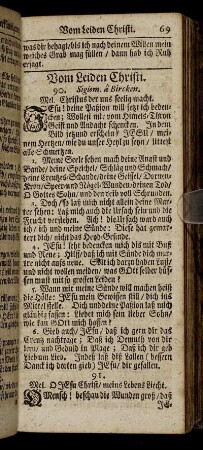 Vom Leiden Christi. 69
was dir behagt/ bis ich nach deinem Willen mein
weiches Grab mag füllen / dann hab ich Ruh
erjagt.
Vom Leiden Christi.
90. Sigism. â Bircken.
Mel. Christus der uns seelig macht.
JEsu! deine Passion will ich jetzt beden-
cken; Wollest mir vom Himels-Thron
Geist und Andacht schencken. In dem
Bild jetzund erschein/ JESU / mei-
nem Hertzen/ wie du unser Heyl zu seyn / littest
alle Schmertzen.
2. Meine Seele sehen mach deine Angst und
Bande/ deine Speichel/ Schläg und Schmach/
deine Creutzes-Schande/ deine Geissel/ Dornen-
Kron/ Speer- und Nägel-Wunden/ deinen Tod/
O Gottes Sohn/ und den
3. Doch/ laß mich nicht allein deine Mar-
ter sehen: laß mich auch die Ursach fein und die
Frucht verstehen. Ach! die Ursach war auch
ich / ich und meine Sünde: Diese hat gemar-
tert dich/
4. JEsu! lehr bedencken mich diß mit Buß
und Reue; Hilff/ daß ich mit Sünde nicht mar-
tre dich aufs neue. Solt ich darzu haben Lust/
und nicht wollen meiden/ was GOtt selber büs-
sen must mit so grossen Leiden?
5. Wann mir meine Sünde will machen heiß
die Hölle: JEsu mein Gewissen still/ dich ins
Mittel stelle. Dich und deine Passion laß mich
gläubig fassen: Liebet mich sein lieber Sohn/
wie kan GOtt mich hassen?
6. Gib auch/ JEsu/ daß ich gern dir das
Creutz nachtrage; Daß ich Demuth von dir
lern/ und Geduld in Plage; Daß ich dir geb
Lieb um Lieb. Indeß laß diß Lallen / bessern
Danck ich dorten gieb) JEsu/ dir gefallen.
91.
Mel. O JEsu Christ/ meins Lebens Liecht.
O Mensch! beschau die Wunden groß/ daß
JE-